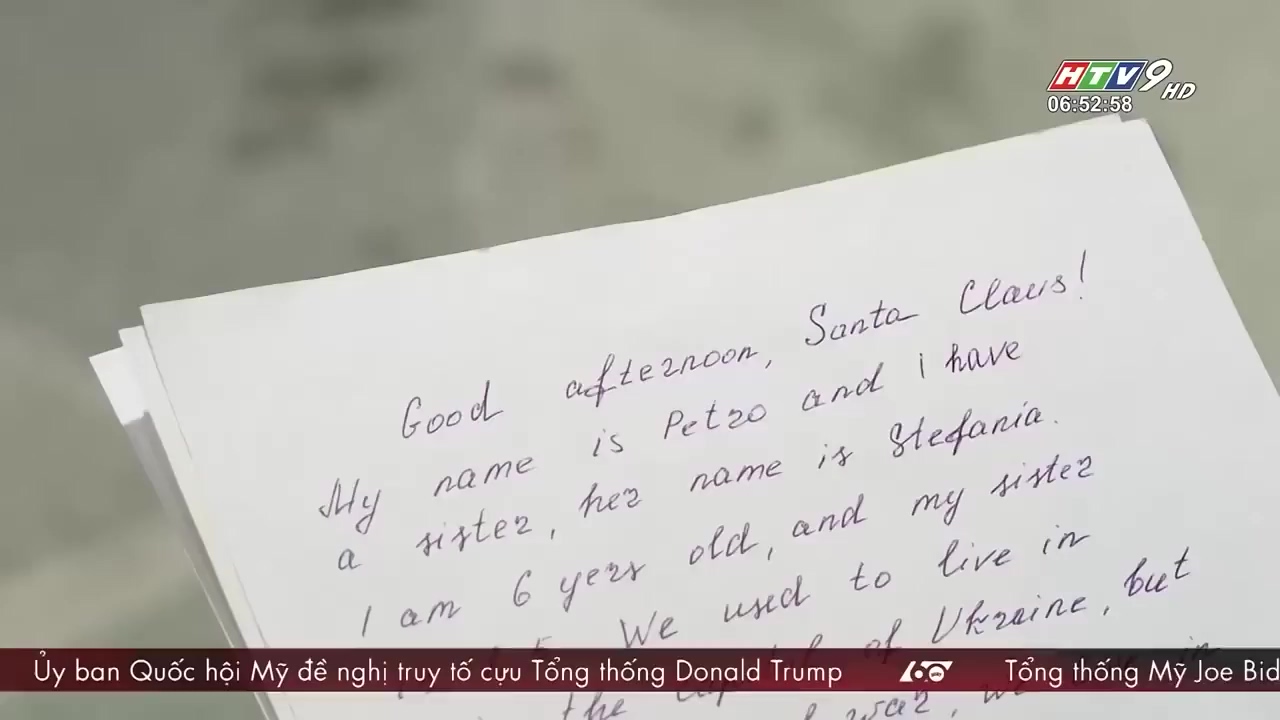 HTV9 HD
06:52:58
Good afternoon, Santa Claus!
My name is Petro and i have
a sister, her name is Stefania.
I am 6 yers old, and my sister
We used to live in
the capital of Ukraine, but
war, we in
Ủy ban Quốc hội Mỹ đề nghị truy tố cựu Tổng thống Donald Trump
60 Tổng thống Mỹ Joe Bid